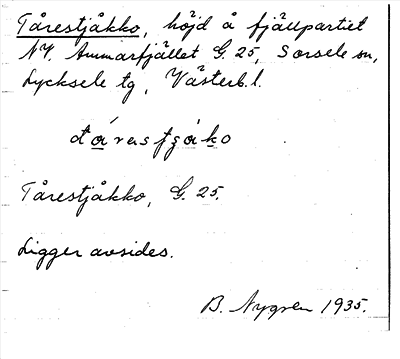 Tårestjåkko, höjd å fjällpartiet
NV. Ammarfjället G. 25, Sorsele sn,
Lycksele tg, Västerb. l.
Tårestjåkko, G. 25.
Ligger avsides.
B. Nygren 1935.